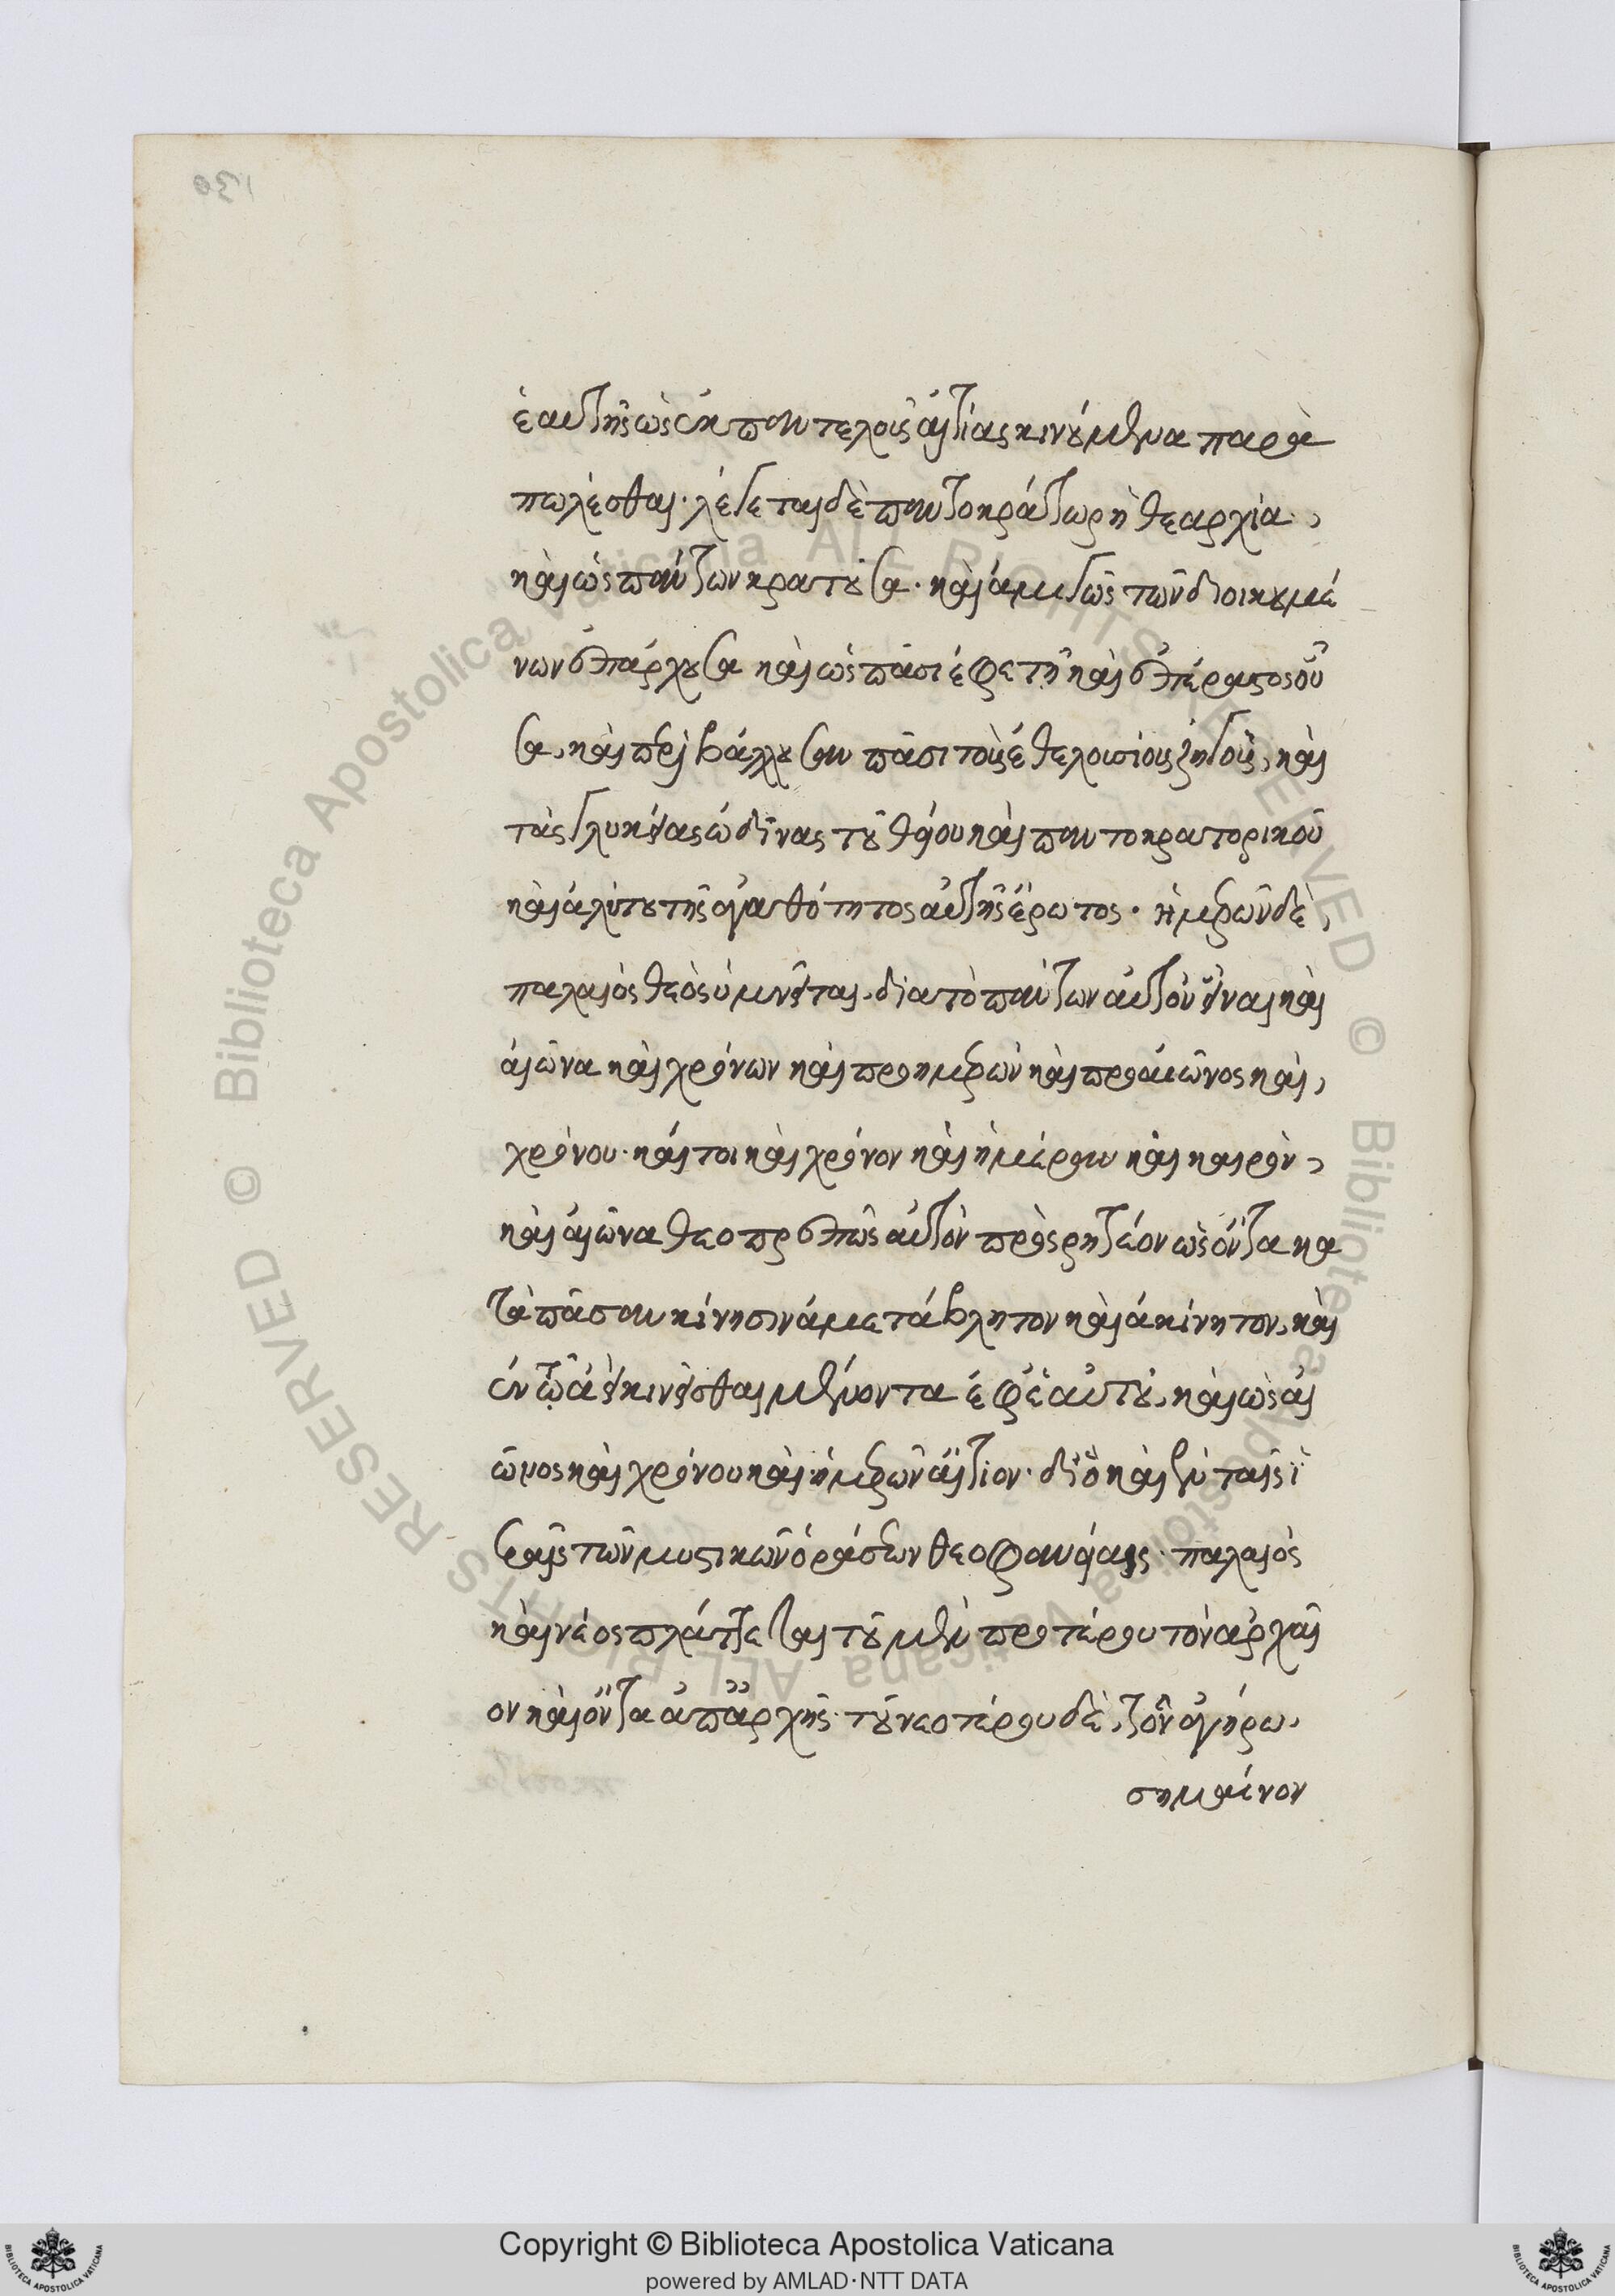 ἑαυτῆς ὡς ἐκ παντελοῦς αἰτίας κινούμενα παρα
πωλέσθαι· λέγεται δὲ παντοκράτωρ ἡ θεαρχία,
καὶ ὡς πάντων κρατοῦσα· καὶ ἀμιγῶς τῶν διοικουμέ
νων ἐπάρχουσα καὶ ὡς πᾶσι ἐφετὴ καὶ ἐπέραστος οὖ
σα, καὶ περιβάλλουσαν πᾶσι τοὺς ἐθελουσίους ζυγοὺς, καὶ
τὰς γλυκείας ὠδῖνας τοῦ θείου καὶ παντοκρατορικοῦ
καὶ ἀλύτου τῆς ἀγαθότητος αὐτῆς ἔρωτος· ἡμερῶν δὲ,
παλαιὸς θεὸς ὑμνεῖται, διὰ τὸ πάντων αὐτὸν εἶναι καὶ
αἰῶνα καὶ χρόνων καὶ προημερῶν καὶ προαιῶνος καὶ,
χρόνου· καίτοι καὶ χρόνον καὶ ἡμέραν καὶ καιρὸν,
καὶ αἰῶνα θεοπρεπῶς αὐτὸν προσρητέον ὡς ὄντα κα
τὰ πᾶσαν κίνησιν ἀμετάβλητον καὶ ἀκίνητον, καὶ
ἐν τῷ ἀεὶ κινεῖσθαι μένοντα ἐφ' ἑαυτοῦ, καὶ ὡς αἰ
ῶνος καὶ χρόνου καὶ ἡμερῶν αἴτιον· διὸ καὶ ἐν ταῖς ἱ
εραῖς τῶν μυστικῶν ὁράσεων θεοφανείαις· παλαιὸς
καὶ νέος πλάττεται τοῦ μὲν προτέρου τὸν ἀρχαῖ
ον καὶ ὄντα ἀπ' ἀρχῆς· τοῦ νεοτέρου δὲ, τὸν ἀγήρω,
σημαίνον
Copyright © Biblioteca Apostolica Vaticana
powered by AMLAD·NTT DATA